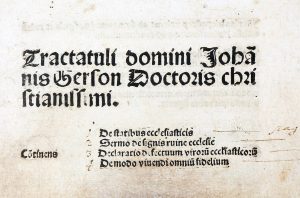 Tractatuli domini Johā
nis Gerson Doctoris chri
stianissimi.
1 De statibus ecclesiasticis
2 Sermo de signis ruine ecclesie
Cōtinens 3 Declaratio defectuum virorū ecclesiasticorū
4 De modo vivendi omniū fidelium